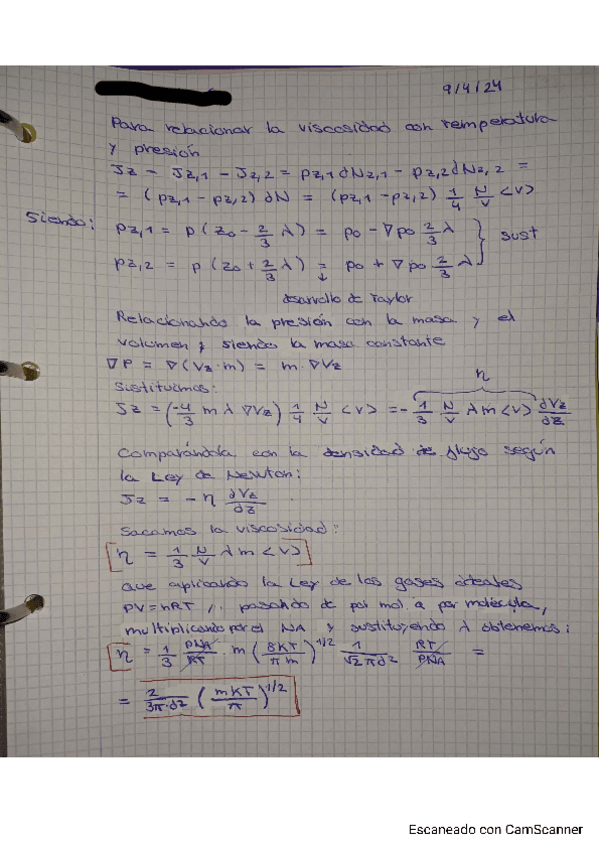 9/4/24
Para relacionar la viscosidad con temperatura
y presión
Jz = Jz,1 - Jz,2 = pz,1 dNz,1 - pz,2 dNz,2 =
= (pz,1 - pz,2) dN = (pz,1 - pz,2) 1/4 N/V <v>
Siendo: pz,1 = p (z0 - 2/3 λ) = p0 - ∇p0 2/3 λ } sust
pz,2 = p (z0 + 2/3 λ) = p0 + ∇p0 2/3 λ
↓
desarrollo de Taylor
Relacionando la presión con la masa y el
volumen y siendo la masa constante
∇P = ∇(Vz·m) = m·∇Vz
Sustituimos: η
Jz = (-4/3 m λ ∇Vz) 1/4 N/V <v> = - 1/3 N/V λ m <v> dVz/dz
Comparándola con la densidad de flujo según
la Ley de Newton:
Jz = -η dVz/dz
Sacamos la viscosidad:
η = 1/3 N/V λ m <v>
que aplicando la Ley de los gases ideales
PV = nRT, pasando de por mol a por molécula,
multiplicando por el NA y sustituyendo λ obtenemos:
η = 1/3 PNA/RT · m (8KT/πm)^1/2 1/√2πd2 RT/PNA =
= 2/3π·d2 (mKT/π)^1/2
Escaneado con CamScanner